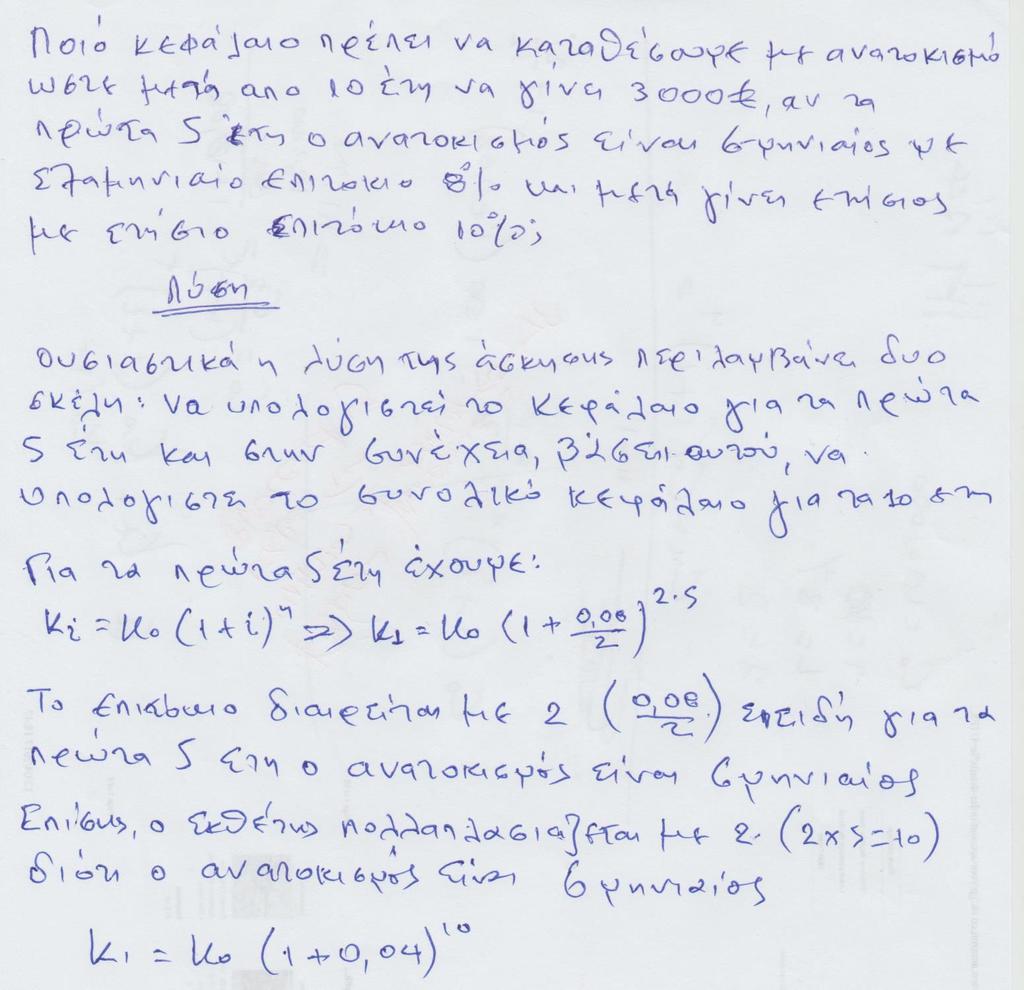 Ποιό κεφάλαιο πρέπει να καταθέσουμε με ανατοκισμό
ωστε μετά απο 10 έτη να γίνει 3000€, αν τα
πρώτα 5 έτη ο ανατοκισμός είναι 6-μηνιαίος με
εξαμηνιαίο επιτοκιο 8% και μετά γίνει ετήσιος
με ετήσιο επιτόκιο 10%;
Λύση
Ουσιαστικά η λύση της άσκησης περιλαμβάνει δυο
σκέλη: να υπολογιστεί το κεφάλαιο για τα πρώτα
5 έτη και στην συνέχεια, βάσει αυτού, να
υπολογιστεί το συνολικό κεφάλαιο για τα 10 ετη
Για τα πρώτα 5 έτη έχουμε:
Ki = Ko (1+i)^n => K1 = Ko (1 + 0,08/2)^2·5
Το επιτόκιο διαιρείται με 2 (0,08/2) επειδή για τα
πρώτα 5 ετη ο ανατοκισμός είναι 6μηνιαίος
Επίσης, ο εκθέτης πολλαπλασιάζεται με 2. (2x5=10)
διότι ο ανατοκισμός είναι 6μηνιαίος
K1 = Ko (1+0,04)^10